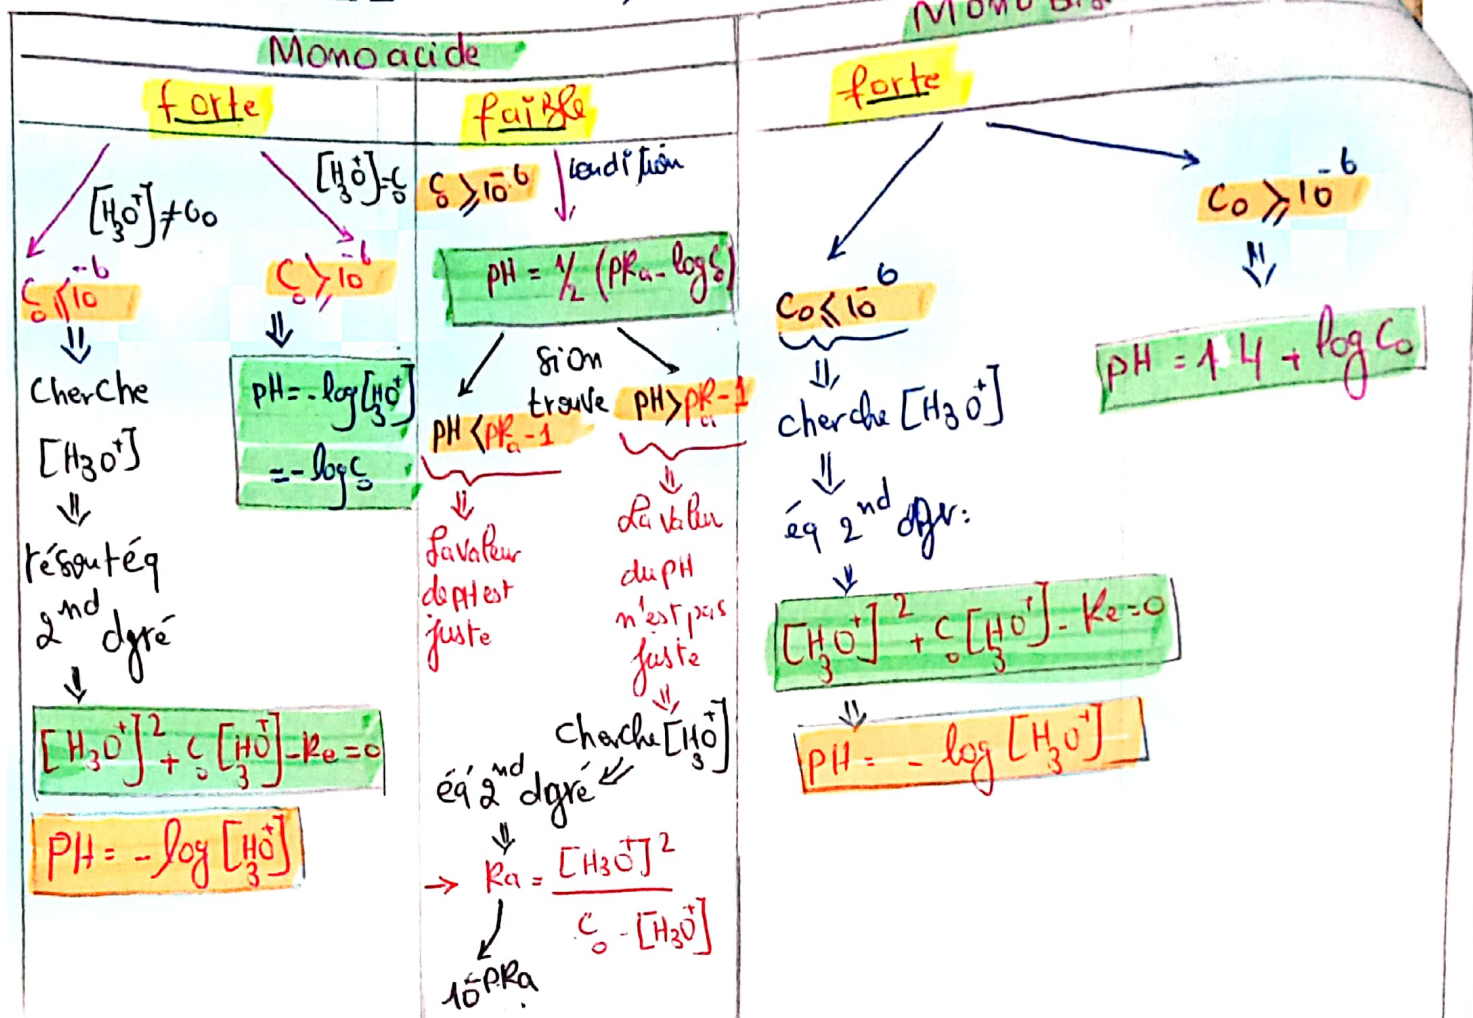 Monoacide
forte
[H3O+]≠C0
C0⩽10-6
⇓
cherche
[H3O+]
⇓
résout éq
2nd dgré
⇓
[H3O+]2+C0[H3O+]-Ke=0
PH=-log[H3O+]
[H3O+]=C0
C0⩾10-6
⇓
PH=-log[H3O+]
=-logC0
faible
C0⩾10-6
condition
PH=1/2(PKa-logC0)
si on
trouve
PH<PKa-1
⇓
La valeur
de PH est
juste
PH>PKa-1
⇓
La valeur
du PH
n'est pas
juste
⇓
cherche [H3O+]
éq 2nd dgré
⇓
→ Ka=[H3O+]2/C0-[H3O+]
10-PKa
Mono
forte
C0⩽10-6
⇓
cherche [H3O+]
⇓
éq 2nd dgr:
⇓
[H3O+]2+C0[H3O+]-Ke=0
⇓
PH=-log[H3O+]
C0⩾10-6
⇓
PH=14+logC0